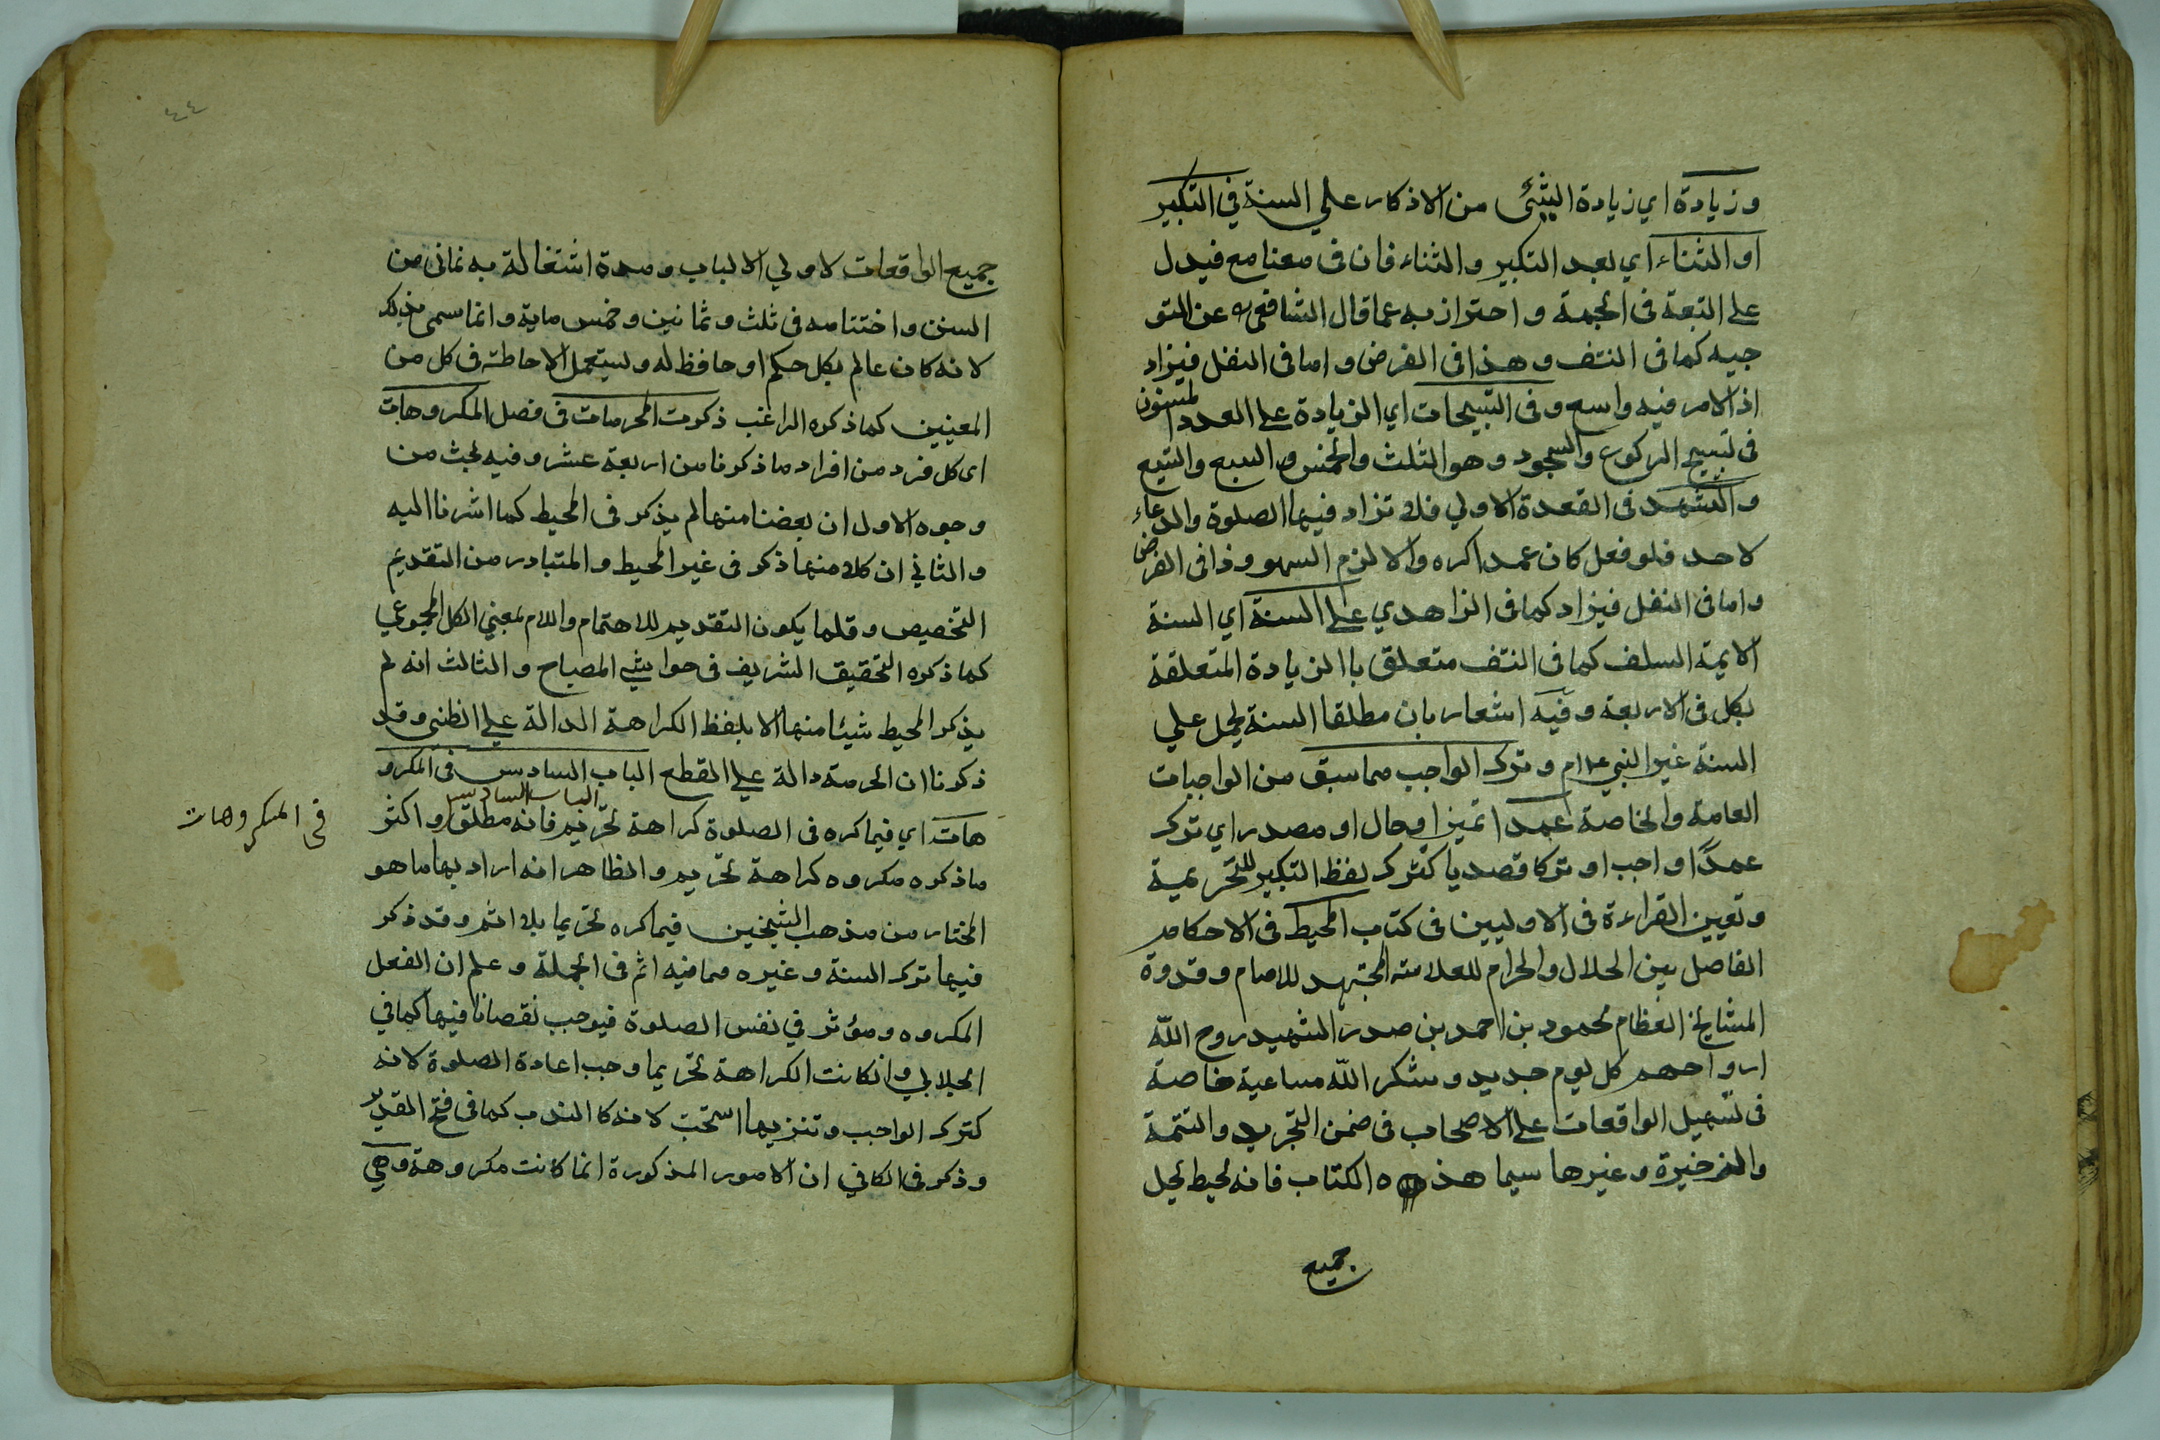 وزيادة اي زيادة الشئ من الاذكار علي السنة في التكبير
او الثناء اي بعد التكبير والثناء فان في معنا مع فيدل
علي التبعة في الجمة واحتراز به عما قال الشافعي عن التو
جيه كما في النتف وهذا في الفرض واما في النفل فيزاد
اذ الامر فيه واسع وفي التسبيحات اي الزيادة علي العدد المسنون
في تسبيح الركوع والسجود وهو الثلث والخمس والسبع والتسع
والتشهد في القعدة الاولي فلا تزاد فيها الصلوة والدعاء
لاحد فلو فعل كان عمدا كره والا لزم السهو وذا في الفرض
واما في النفل فيزاد كما في الزاهدي علي السنة اي السنة
الايمة السلف كما في النتف متعلق باالزيادة المتعلقة
بكل في الاربعة وفيه اشعار بان مطلقا السنة يحمل علي
السنة غير النبي علام وترك الواجب مما سبق من الواجبات
العامة والخاصة عمدا تميز او حال او مصدر اي ترك
عمدا واجب او تركا قصديا كترك لفظ التكبير للتحريمة
وتعيين القراءة في الاوليين في كتاب المحيط في الاحكام
الفاصل بين الحلال والحرام للعلامة المجتهد للامام وقدوة
المشايخ العظام محمود بن احمد بن صدر الشهيد روح الله
ارواحهم كل يوم جديد وشكر الله مساعية خاصة
في تسهيل الواقعات علي الاصحاب في ضمن التجريد والتتمة
والذخيرة وغيرها سيما هذه الكتاب فانه لحيط لحل
جميع
٤٤
جميع الواقعات لاولي الالباب ومدة اشتغالة به ثماني من
السنن واختتامه في ثلث وثمانين وخمس ماية وانما سمي بذلك
لانه كان عالم بكل حكم او حافظ له وليستعمل الاحاطة في كل من
المعنيين كما ذكره الراغب ذكرت المحرمات في فصل المكروهات
اي كل فرد من افراد ما ذكرنا من اربعة عشر وفيه بحث من
وجوه الاول ان بعضنا منها لم يذكر في المحيط كما اشرنا اليه
والثاني ان كلا منها ذكر في غير المحيط والمتبادر من التقديم
التخصيص وقلما يكون التقديم للاهتمام واللام بمعني الكل المجموعي
كما ذكره التحقيق الشريف في حواشي المصباح والثالث انه لم
يذكر المحيط شيئا منها الا بلفظ الكراهة الدالة علي الظني وقد
ذكرنا ان الحرمة دالة علي القطع الباب السادس في المكرو
الباب السادس
في المكروهات
هات اي فيما كره في الصلوة كراهة تحريم فانه مطلق واكثر
ما ذكره مكروه كراهة تحريم والظاهر انه اراد بها ما هو
المختار من مذهب الشيخين فيما كره تحريما بلا اثم وقد ذكر
فيها ترك السنة وغيره مما فيه اثم في الجملة وعلم ان الفعل
المكروه ومؤثر في نفس الصلوة فيوجب نقصانا فيها كما في
الجلابي وان كانت الكراهة تحريما وجب اعادة الصلوة لانه
كترك الواجب وتنزيها استحب لانه كالندب كما في فتح القدير
وذكر في الكافي ان الامور المذكورة انما كانت مكروهة وهي